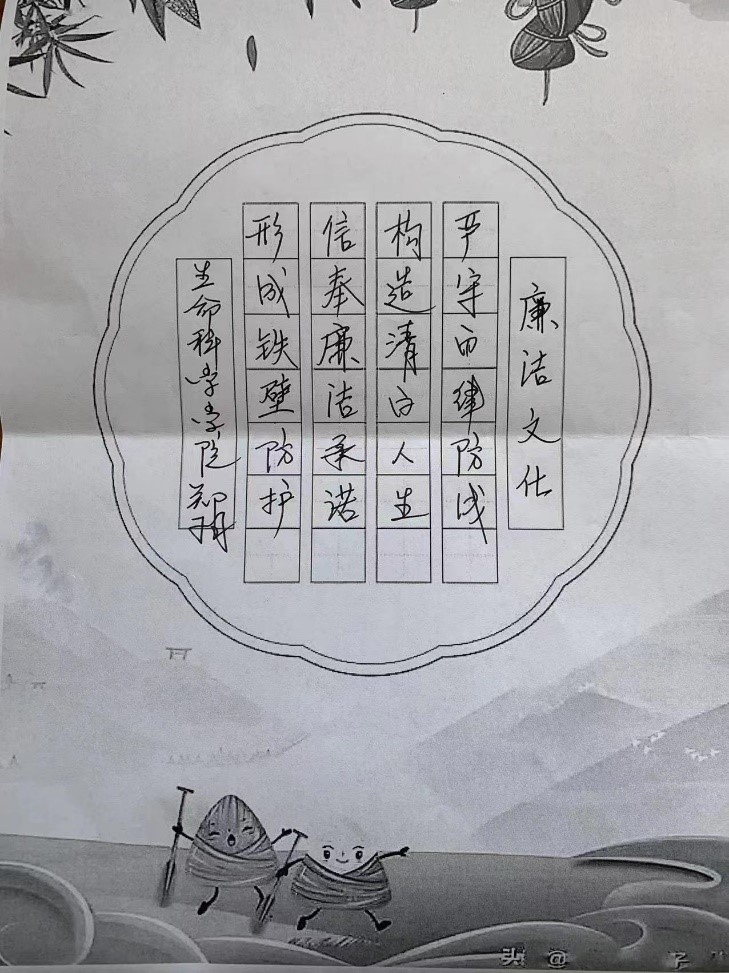 廉洁文化
严守白律防线
构造清白人生
信奉廉洁承诺
形成铁壁防护
生命科学学院
头 @